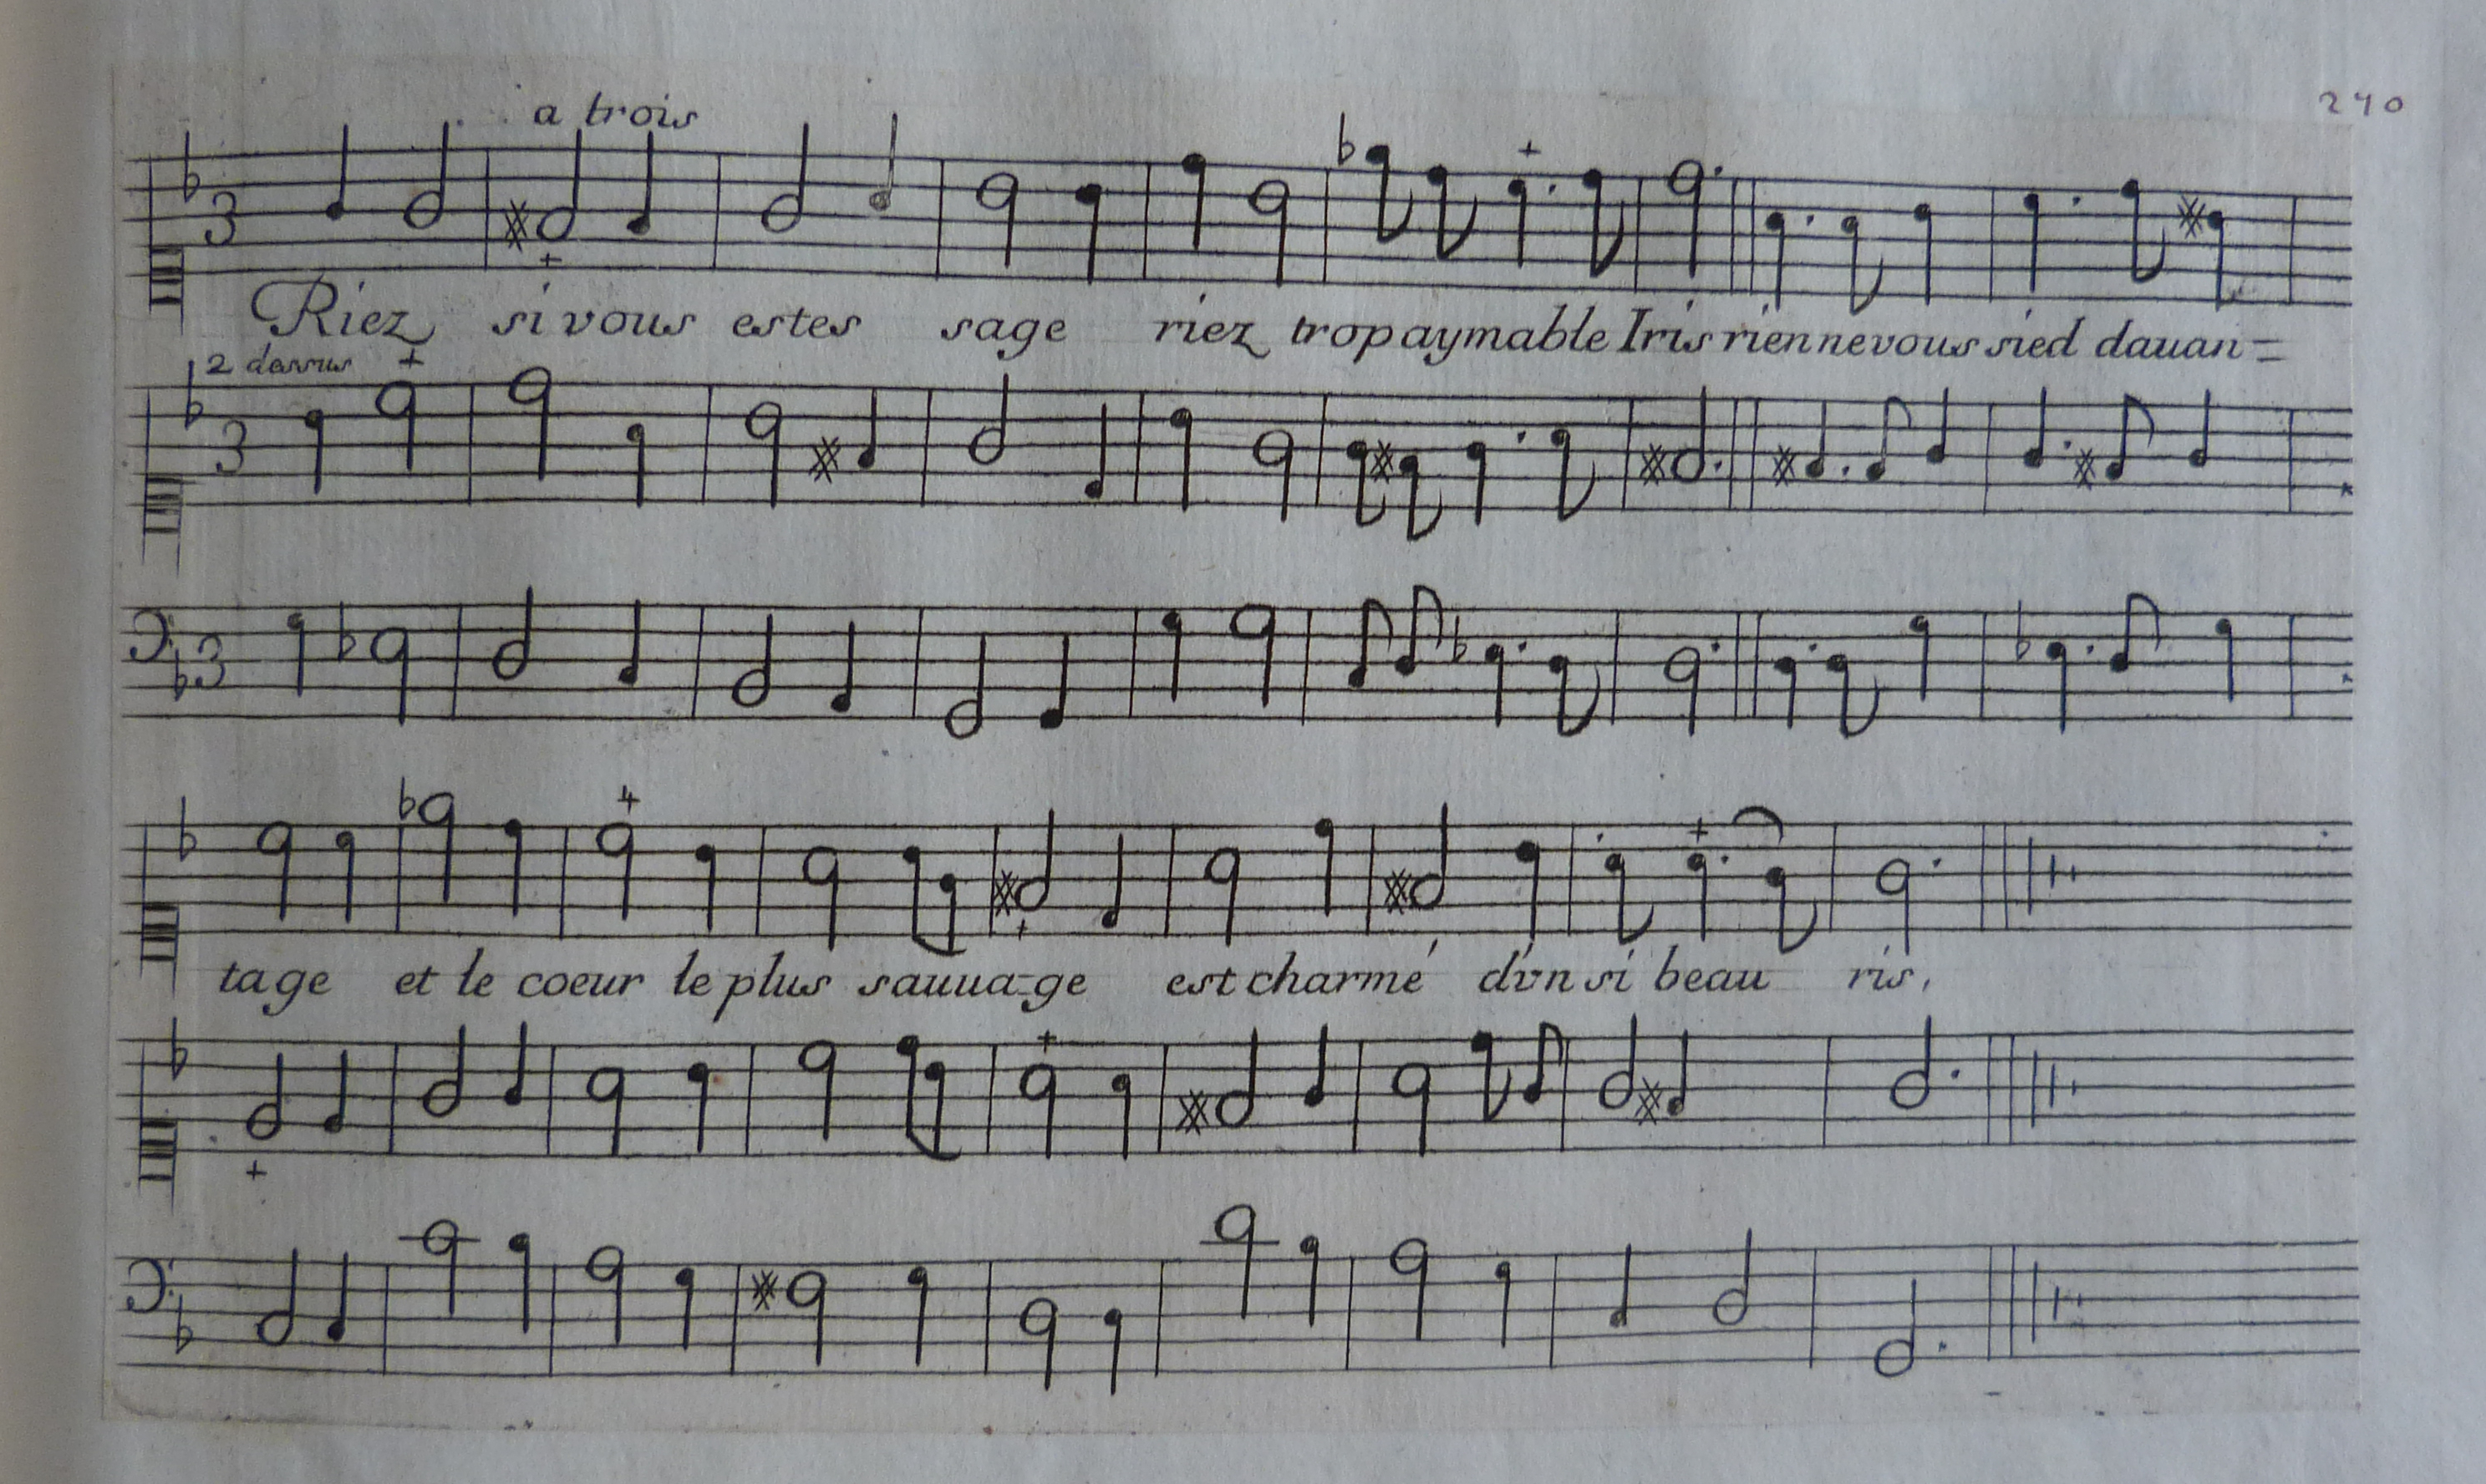 a trois
240
3
Riez si vous estes sage riez trop aymable Iris rien ne vous sied dauan=
2 dessus
3
3
tage et le coeur le plus sauua-ge est charmé d'vn si beau ris,